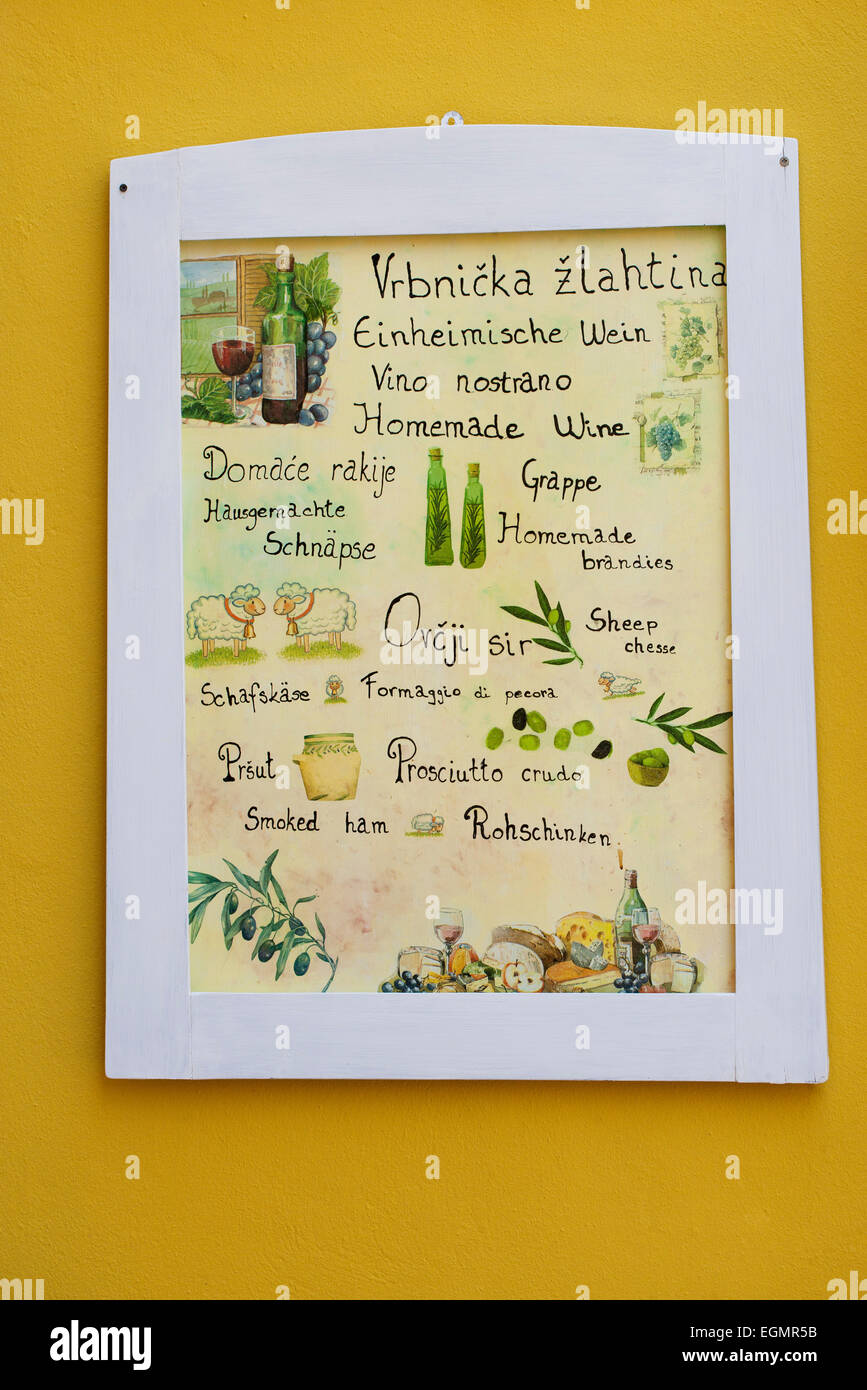 Vrbnička žlahtina
Einheimische Wein
Vino nostrano
Homemade Wine
Domaće rakije
Grappe
Hausgemachte
Schnäpse
Homemade
brandies
Ovčji sir
Sheep
chesse
Schafskäse
Formaggio di pecora
Pršut
Prosciutto crudo
Smoked ham
Rohschinken
alamy
Image ID: EGMR5B
www.alamy.com